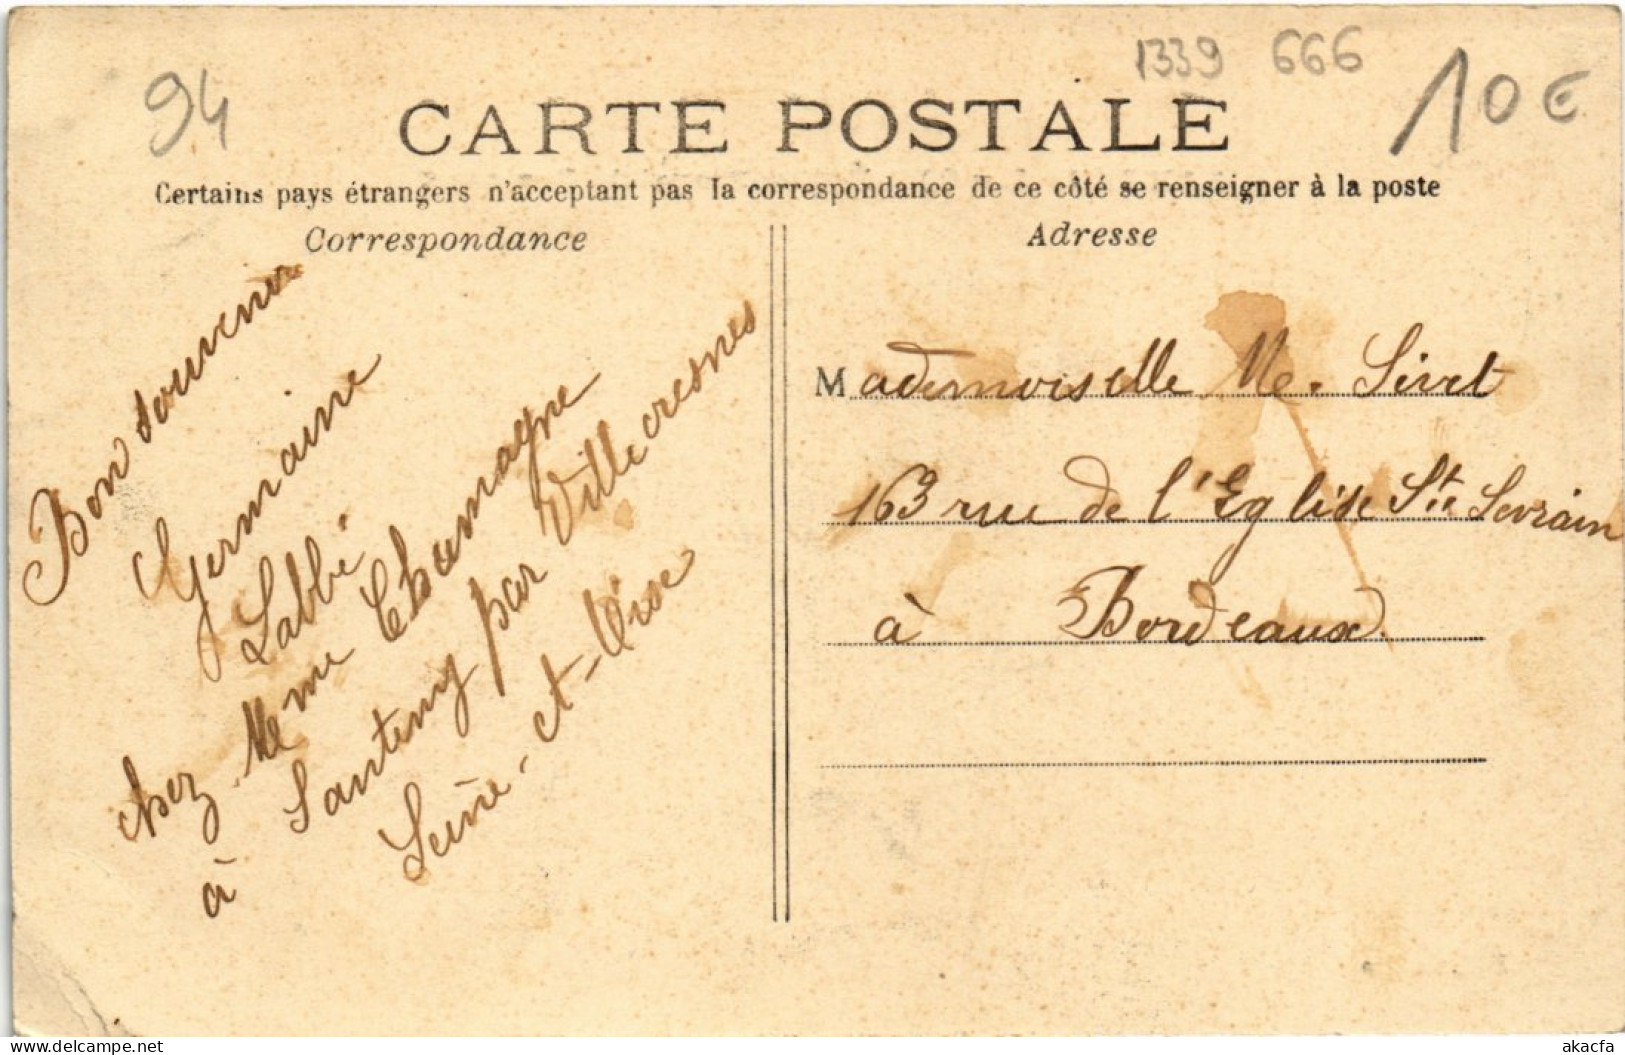 94
1339 666
10€
CARTE POSTALE
Certains pays étrangers n'acceptant pas la correspondance de ce côté se renseigner à la poste
Correspondance
Adresse
Bon souvenir
Germaine
Labbé
chez Mme Chaumagne
à Santeny par Villecresnes
Seine-et-Oise
Mademoiselle M. Sivet
163 rue de l'Eglise Ste Sevrain
à Bordeaux
akacfa